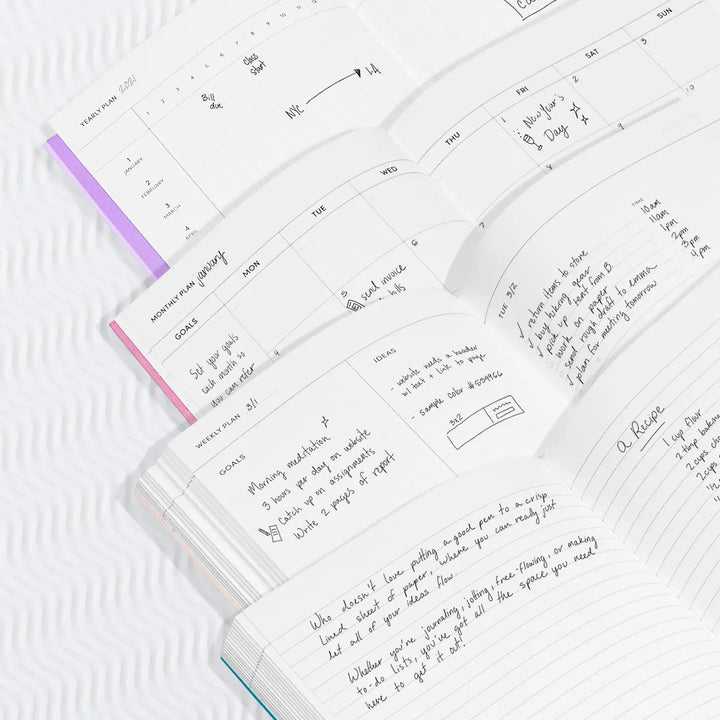 YEARLY PLAN 2021
1 2 3 4 5 6 7 8 9 10 11 12
Class
start
Bill
due
NYC LA
1
JANUARY
2
FEBRUARY
3
MARCH
4
APRIL
THU
FRI
SAT
SUN
1
New Year's
Day
2
3
7
8
9
10
MONTHLY PLAN January
GOALS
MON
TUE
WED
Set your goals
each month so
you can refer
4
5
send invoice
bills
6
TUE 3/2
✓ return items to store
✓ buy hiking gear
✓ pick up tent from B.
work on paper
✓ send rough draft to emma
✓ plan for meeting tomorrow
TIME
10am
11am
1pm
2pm
3pm
4pm
WEEKLY PLAN 3/1
GOALS
Morning meditation
3 hours per day on website
Catch up on assignments
Write 2 pages of report
IDEAS
- website needs a header
w/ text + link to page
- sample color #559966
312
a Recipe
1 cup flour
2 tbsp
2 cups
2 cups
Who doesn't love putting a good pen to a crisp
lined sheet of paper, where you can really just
let all of your ideas flow.
Whether you're journaling, jotting, free-flowing, or making
to-do lists, you've got all the space you need
here to get it out!